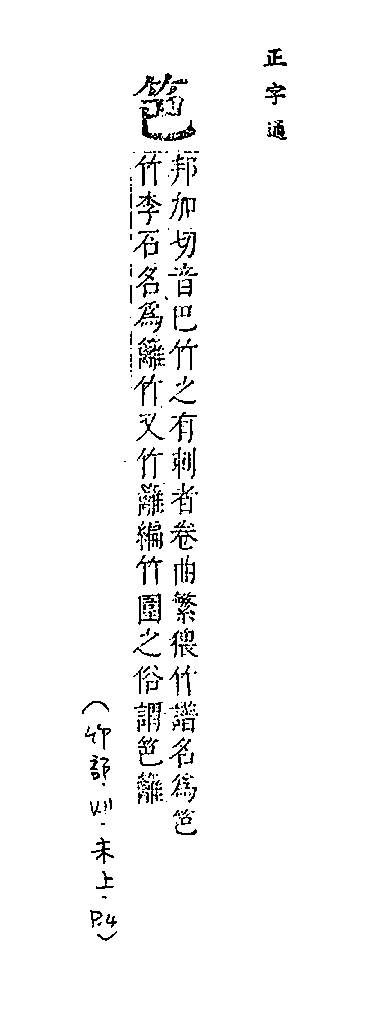 正字通
笆
邦加切音巴竹之有刺者卷曲繁猥竹譜名爲笆
竹李石名爲籬竹又竹籬編竹圍之俗謂笆籬
(竹部.VII.未上.P.4)